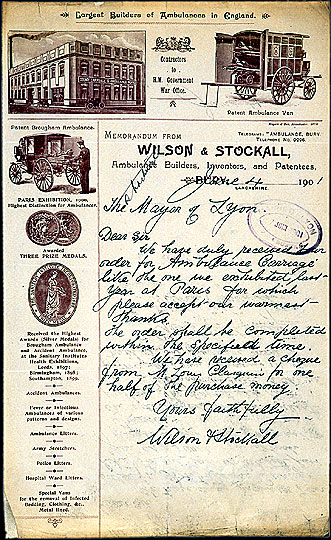 Largest Builders of Ambulances in England.
Contractors
to
H.M. Government
War Office.
Patent Ambulance Van
Patent Brougham Ambulance.
MEMORANDUM FROM
TELEGRAMS: "AMBULANCE, BURY."
TELEPHONE No. 0096.
WILSON & STOCKALL,
Ambulance Builders, Inventors, and Patentees,
BURY,
LANCASHIRE.
June 1901
PARIS EXHIBITION, 1900,
Highest Distinction for Ambulances.
Awarded
THREE PRIZE MEDALS.
Received the Highest
Awards (Silver Medals) for
Brougham Ambulance
and Accident Ambulance,
at the Sanitary Institutes
Health Exhibitions,
Leeds, 1897;
Birmingham, 1898;
Southampton, 1899.
Accident Ambulances.
Fever or Infectious
Ambulances of various
patterns and designs.
Ambulance Litters.
Army Stretchers.
Police Litters.
Hospital Ward Litters.
Special Vans
for the removal of Infected
Bedding, Clothing, &c.,
Metal lined.
The Mayor of Lyon.
Dear Sir
We have duly received your
order for Ambulance Carriage
like the one we exhibited last
year at Paris for which
please accept our warmest
thanks.
The order shall be completed
within the specified time
We have received a cheque
from M. Louis for one
half of the purchase money.
Yours faithfully
Wilson & Stockall